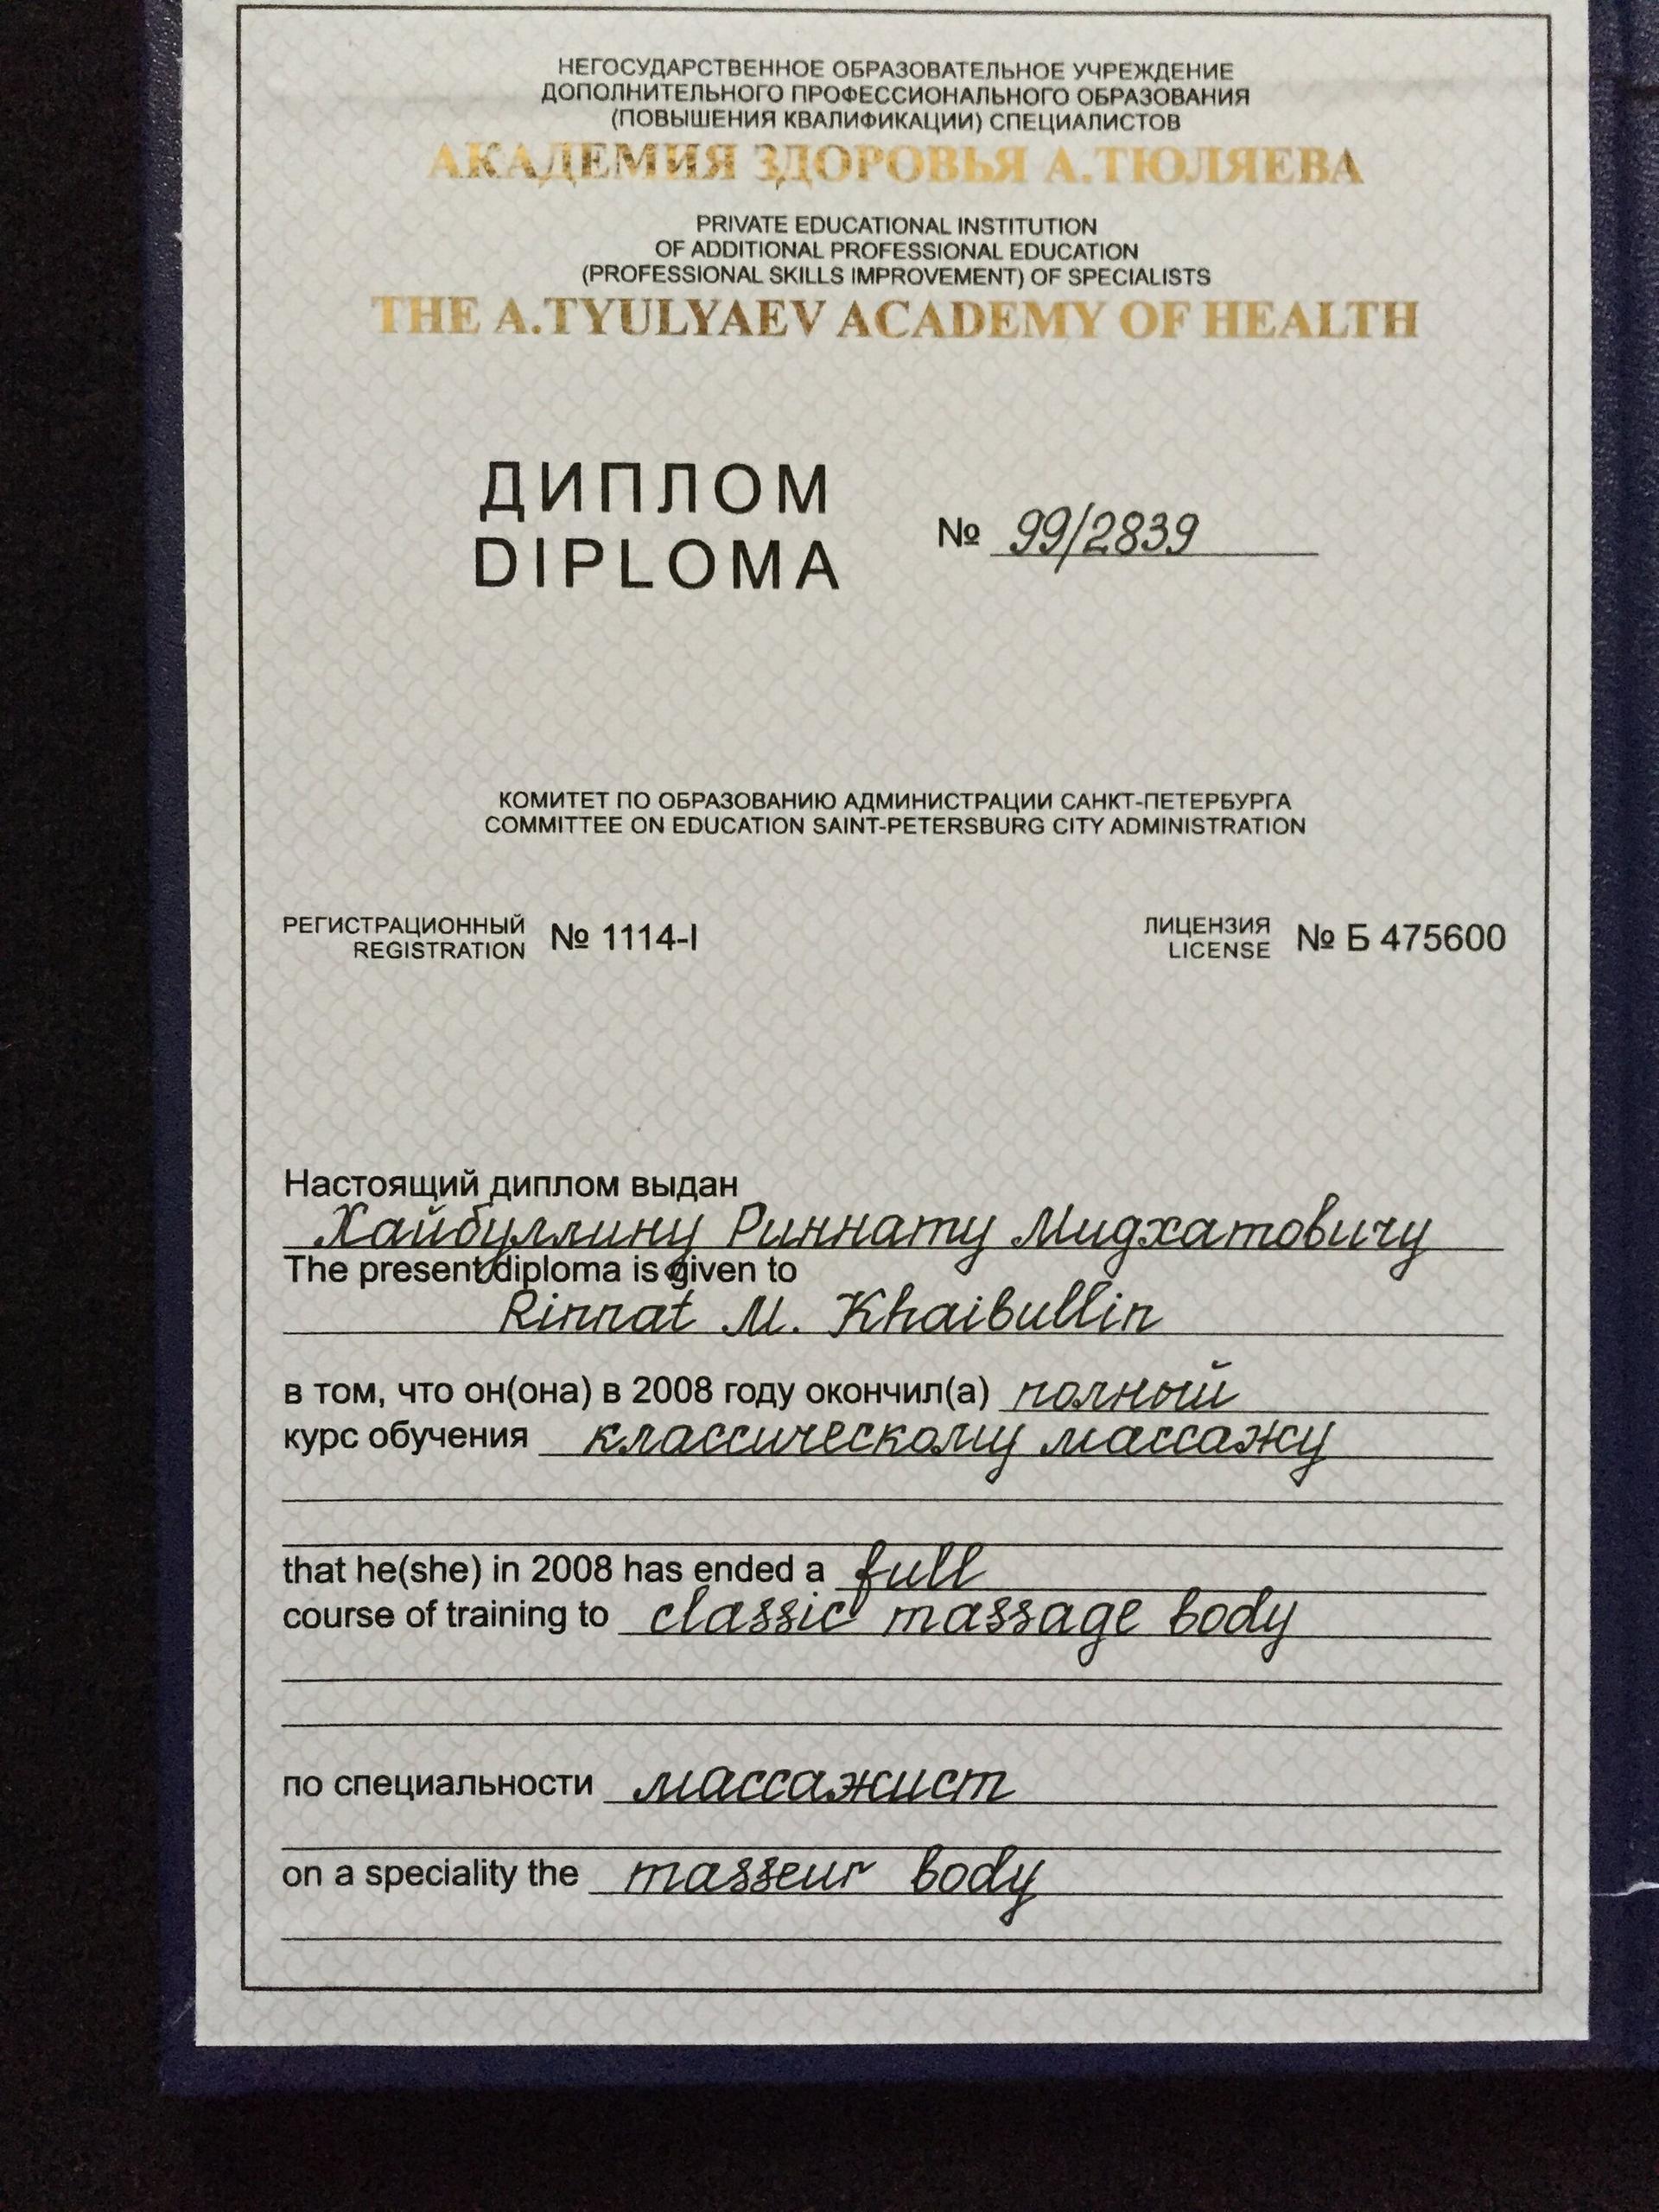 НЕГОСУДАРСТВЕННОЕ ОБРАЗОВАТЕЛЬНОЕ УЧРЕЖДЕНИЕ
ДОПОЛНИТЕЛЬНОГО ПРОФЕССИОНАЛЬНОГО ОБРАЗОВАНИЯ
(ПОВЫШЕНИЯ КВАЛИФИКАЦИИ) СПЕЦИАЛИСТОВ
АКАДЕМИЯ ЗДОРОВЬЯ А.ТЮЛЯЕВА
PRIVATE EDUCATIONAL INSTITUTION
OF ADDITIONAL PROFESSIONAL EDUCATION
(PROFESSIONAL SKILLS IMPROVEMENT) OF SPECIALISTS
THE A.TYULYAEV ACADEMY OF HEALTH
ДИПЛОМ
DIPLOMA
№ 99/2839
КОМИТЕТ ПО ОБРАЗОВАНИЮ АДМИНИСТРАЦИИ САНКТ-ПЕТЕРБУРГА
COMMITTEE ON EDUCATION SAINT-PETERSBURG CITY ADMINISTRATION
РЕГИСТРАЦИОННЫЙ
REGISTRATION
№ 1114-I
ЛИЦЕНЗИЯ
LICENSE
№ Б 475600
Настоящий диплом выдан
Хайбуллину Риннату Мидхатовичу
The present diploma is given to
Rinnat M. Khaibullin
в том, что он(она) в 2008 году окончил(а) полный
курс обучения классическому массажу
that he(she) in 2008 has ended a full
course of training to classic massage body
по специальности массажист
on a speciality the masseur body